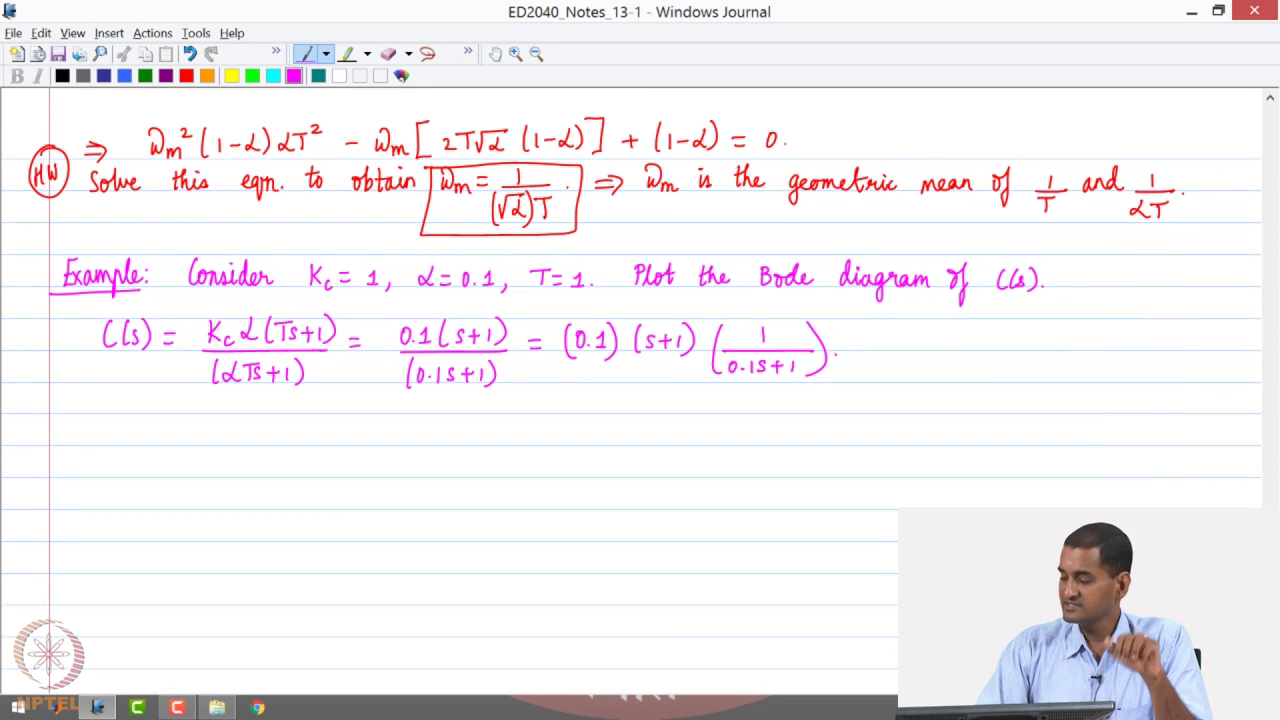 ED2040_Notes_13-1 - Windows Journal
File Edit View Insert Actions Tools Help
HW ⇒ ωm² (1-α) αT² - ωm [ 2T√α (1-α) ] + (1-α) = 0.
Solve this eqn. to obtain ωm = 1/((√α)T) . ⇒ ωm is the geometric mean of 1/T and 1/αT .
Example: Consider Kc = 1, α = 0.1, T = 1. Plot the Bode diagram of C(s).
C(s) = Kc α (Ts+1)/(αTs+1) = 0.1(s+1)/(0.1s+1) = (0.1) (s+1) (1/(0.1s+1)).
NPTEL